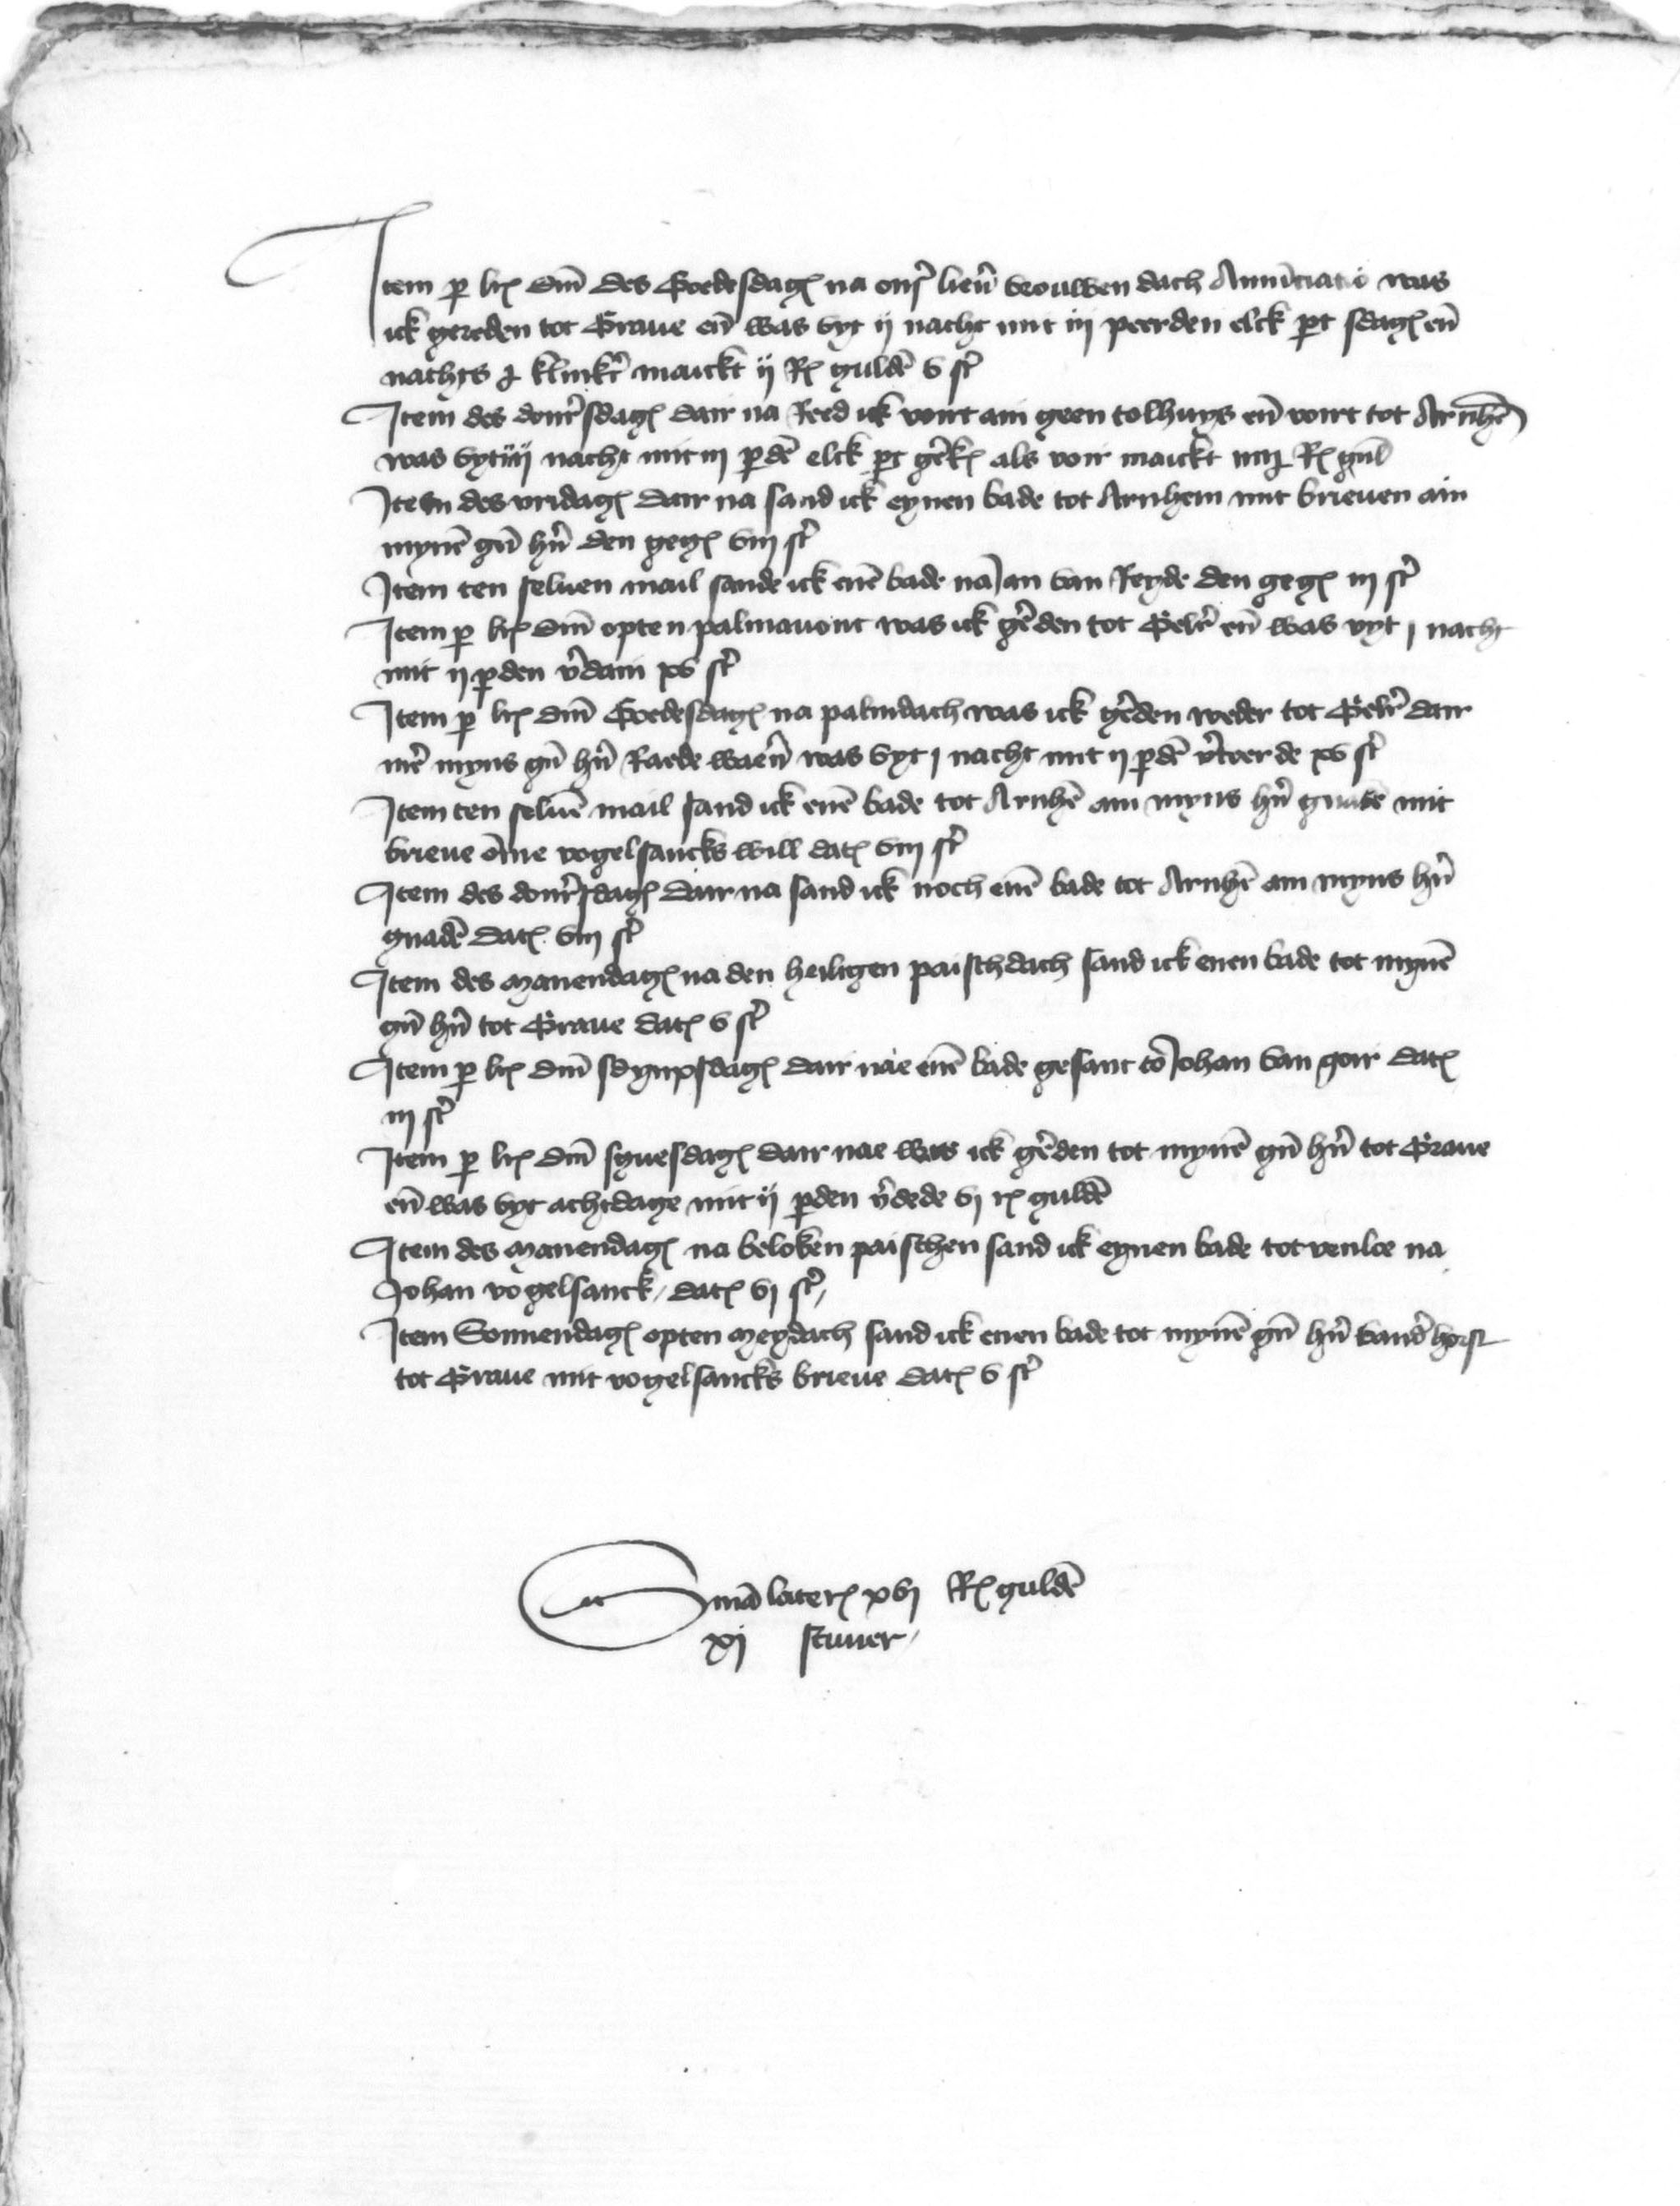 Item p lrē dm̄ des Goedesdagē na onsr̄ lieūr vrouwen dach Annūciatiō was
ick gereden tot Graue eñ was vyt ij nacht mit iij peerden elck pt sdagē eñ
nachts klinkr̄ maickt ij Rē guldē v st̄
Item des donr̄sdagē dair na Reed ick voirt ain geen tolhuys eñ voirt tot Arnhē
was vyt iiij nacht mit iij pdē elck pt gēkē als voir maickt Rē gul̄
Item des vridagē dair na sand ick eynen bade tot Arnhem mit brieuen ain
mynē gn̄ hr̄n den gegē viij st̄
Item ten seluen mail sande ick enē bade na Jan van Reyde den gegē iij st̄
Item p lrē dm̄ opten palmauont was ick gēden tot Gelr̄ eñ was vyt j nacht
mit ij pden v̄dain xv st̄
Item p lrē dm̄ Goedesdagē na palmdach was ick gēden weder tot Gelr̄ dair
mē myns gn̄ hr̄n Raede waer̄n was vyt j nacht mit ij pdē v̄teerde xv st̄
Item ten seluē mail sand ick enē bade tot Arnhē ain myns hr̄n gnadē mit
brieue ōme vogelsancks will datē viij st̄
Item des donr̄sdagē dair na sand ick noch enē bade tot Arnhē ain myns hr̄n
gnadē datē viij st̄
Item des manendagē na den heiligen paischdach sand ick enen bade tot mynē
gn̄ hr̄n tot Graue datē v st̄
Item p lrē dm̄ sdynxsdagē dair nae enē bade gesant to Johan van goir datē
iij st̄
Item p lrē dm̄ sguesdagē dair nae was ick gēden tot mynē gn̄ hr̄n tot Graue
eñ was vyt achtdage mit ij pden v̄dede vj rē guldē
Item des manendagē na beloken paischen sand ick eynen bade tot venloe na
Johan vogelsanck, datē vj st̄,
Item Sonnendagē opten meydach sand ick enen bade tot mynē gn̄ hr̄n vand̄ horst
tot Graue mit vogelsancks brieue datē v st̄
Sum̄a laterē xvij Rē guldē
xj stuuer,